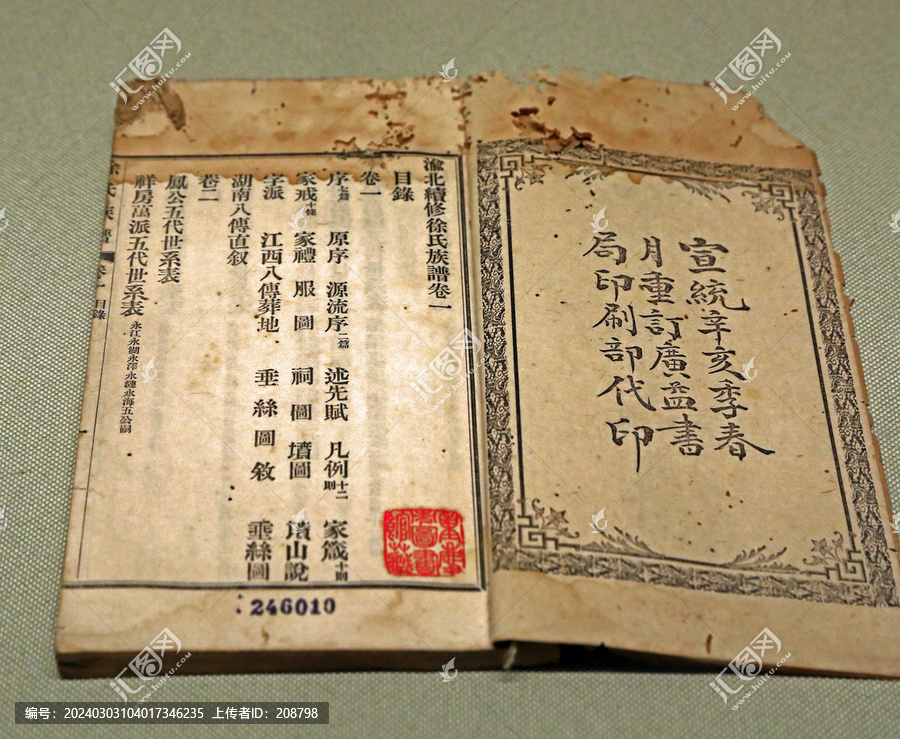 宣統辛亥季春
月重訂廣益書
局印刷部代印
渝北續修徐氏族譜卷一
目錄
卷一
序七篇 原序 源流序二篇 述先賦 凡例十二則 家箴十則
家戒十條 家禮 服圖 祠圖 墳圖 墳山說
字派 江西八傳葬地 垂絲圖敘 垂絲圖
湖南八傳直叙
卷二
鳳公五代世系表
祥房萬派五代世系表 永江永湖永洋永漣永海五公嗣
246010
汇图网
www.huitu.com
编号：20240303104017346235 上传者ID：208798